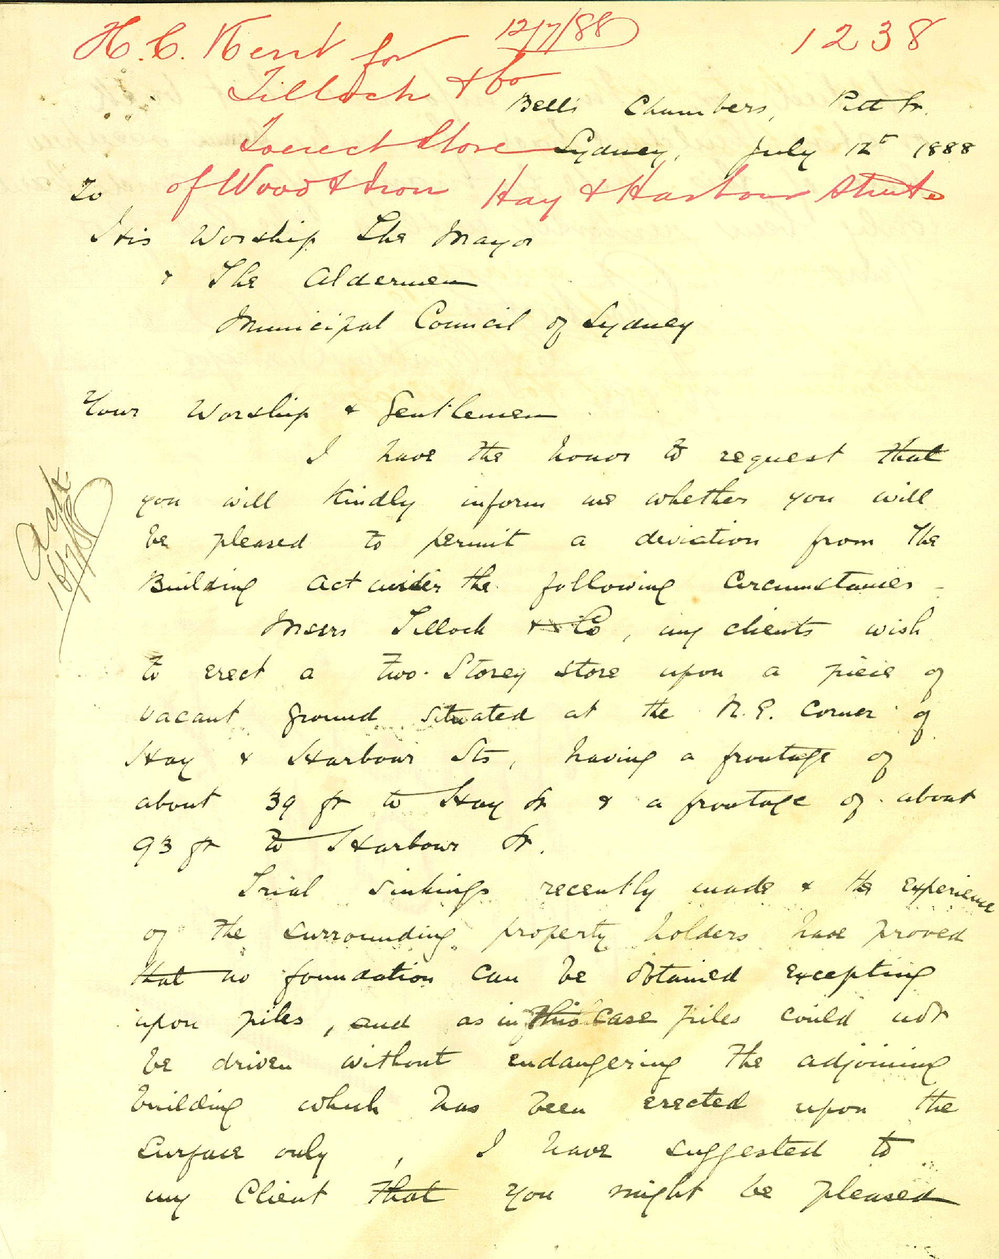 H. C. Kent for 12/7/88 1238
Tillock & Co
Bell's Chambers, Pitt St.
To erect Store Sydney, July 12th 1888
of Wood & Iron Hay & Harbour Streets
To
His Worship The Mayor
& The Aldermen
Municipal Council of Sydney
Your Worship & Gentlemen
I have the honor to request that
you will kindly inform me whether you will
be pleased to permit a deviation from the
Building Act under the following circumstances -
Messrs Tillock & Co, my clients wish
to erect a two-storey store upon a piece of
vacant ground situated at the N.E. corner of
Hay & Harbour Sts, having a frontage of
about 39 ft to Hay St & a frontage of about
93 ft to Harbour St.
Trial sinkings recently made & the experience
of the surrounding property holders have proved
that no foundation can be obtained excepting
upon piles, and as in this case piles could not
be driven without endangering the adjoining
building which has been erected upon the
surface only, I have suggested to
my Client that you might be pleased
Ack
16/7/88